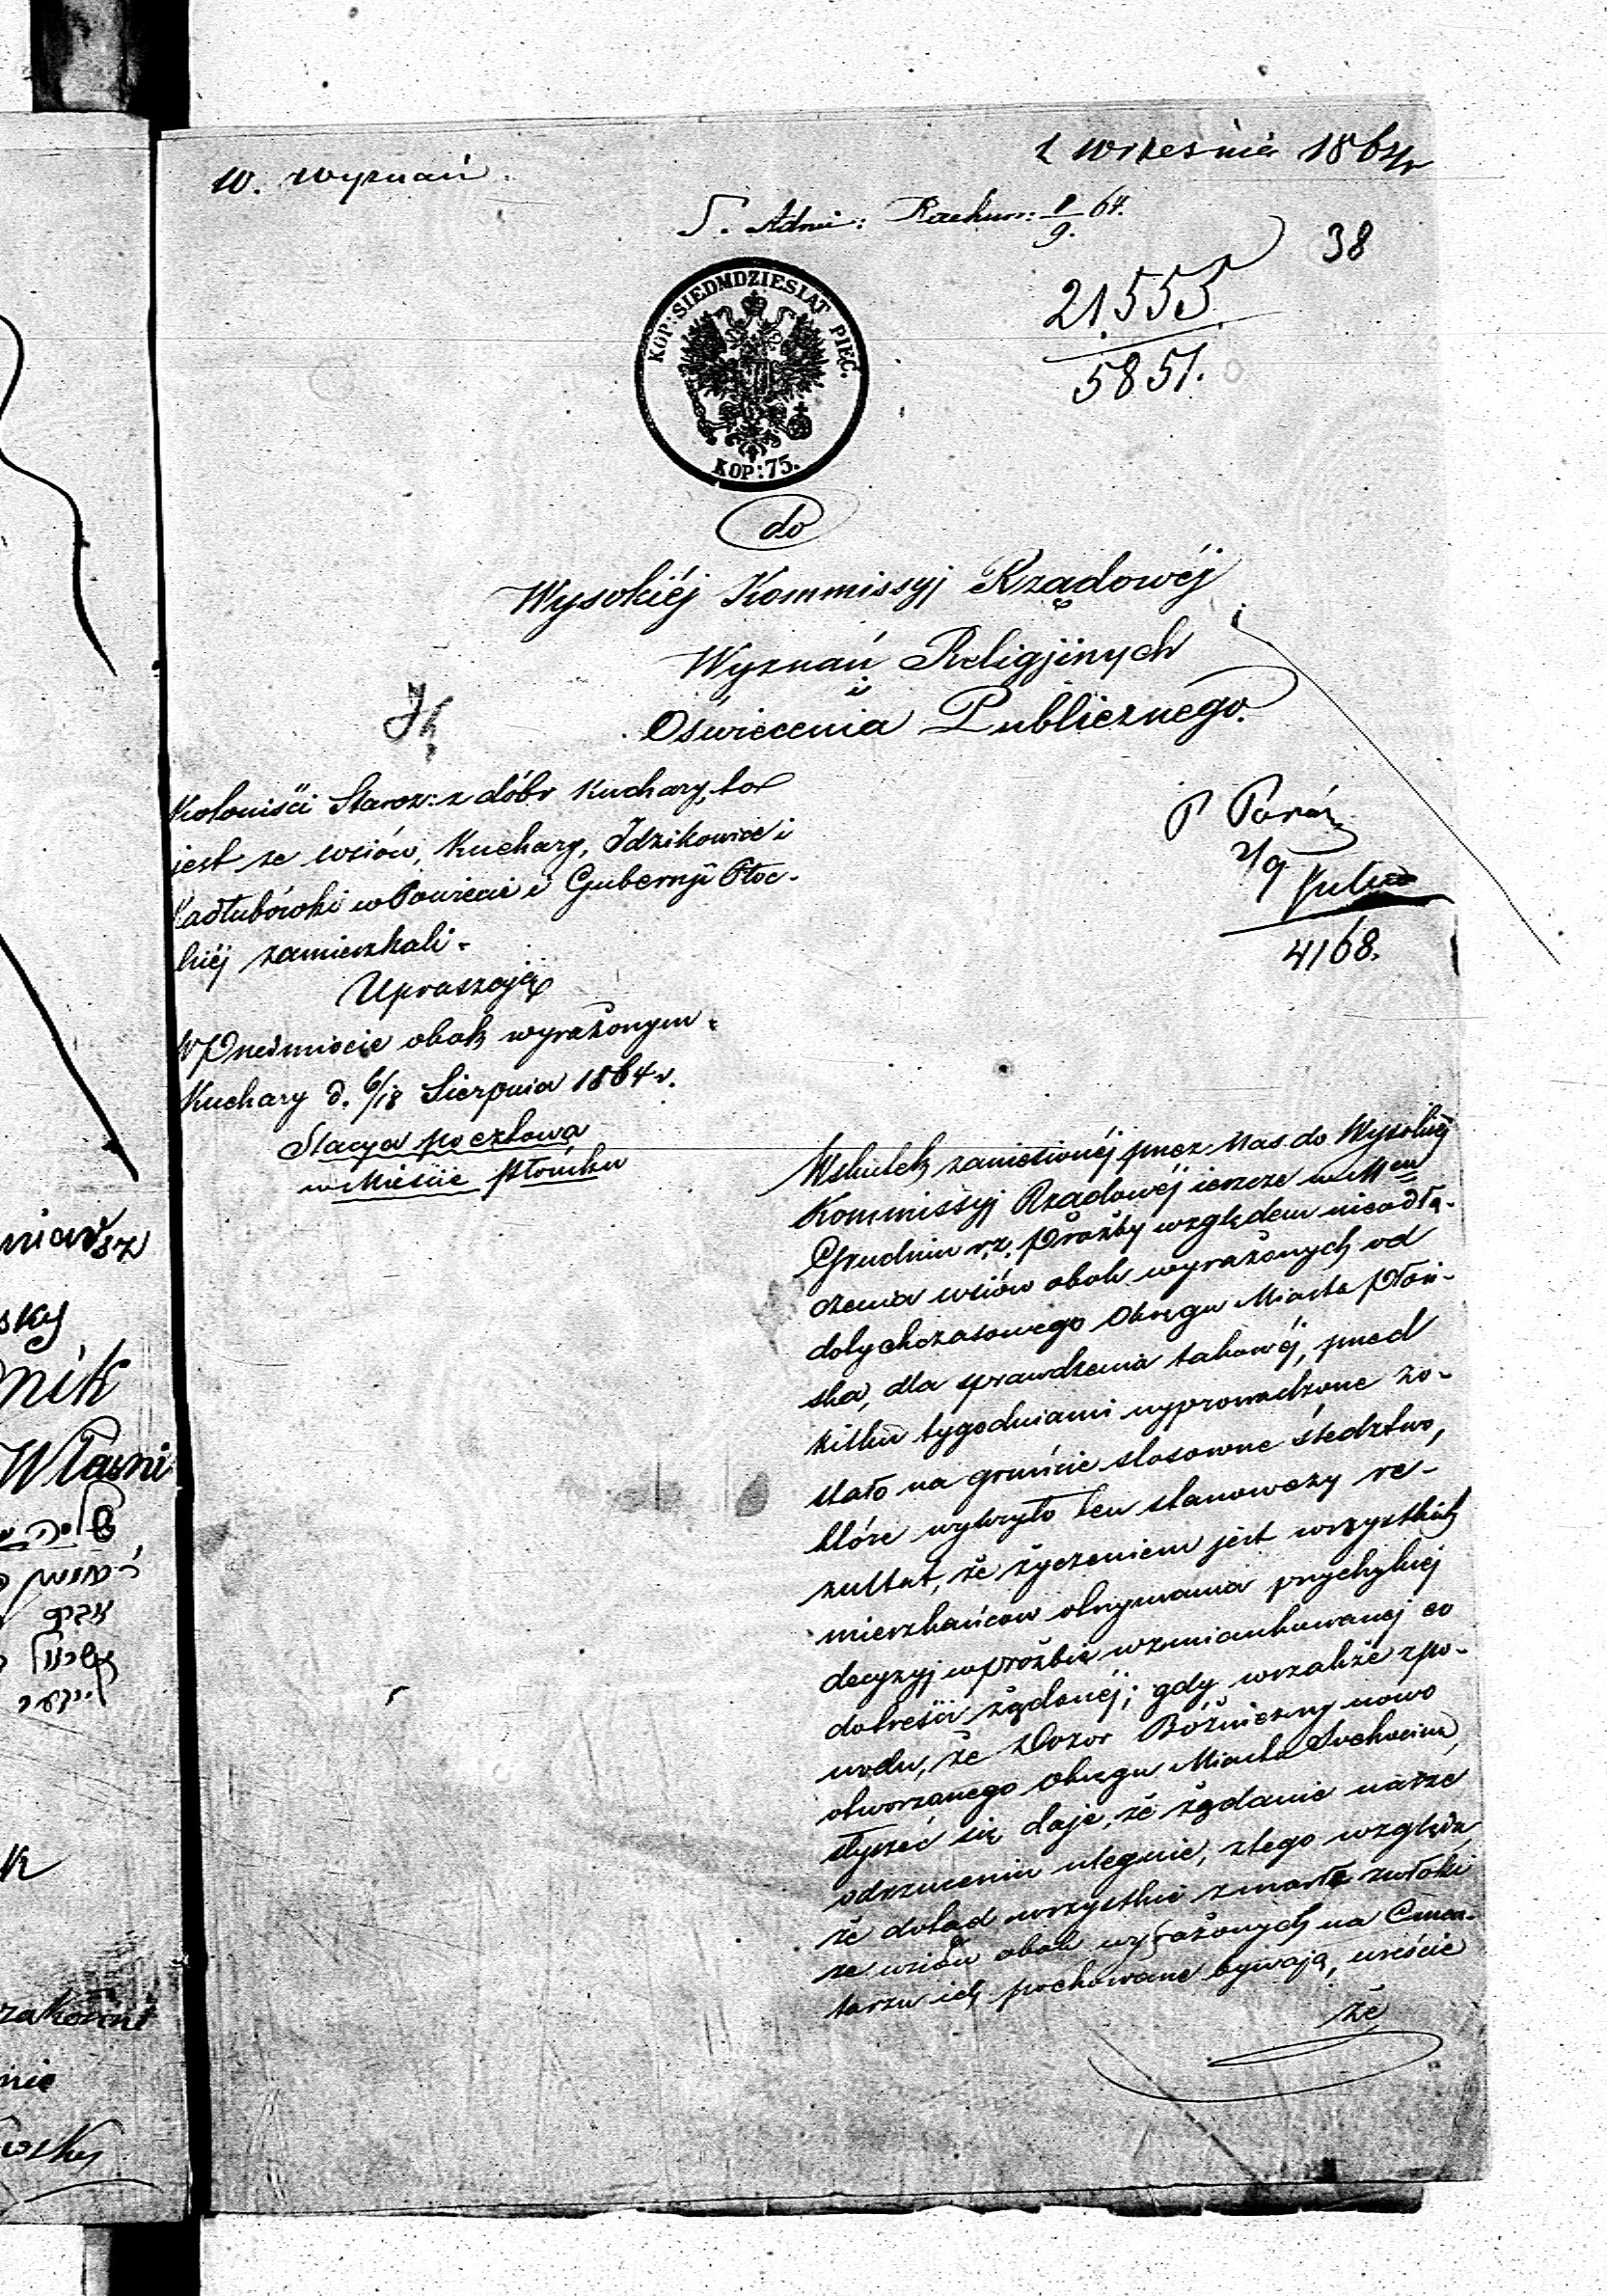 W. Wyznań.
1 września 1864 r
S. Adm: Rachun: 1/9. 64.
38
21.555
5851.
KOP: SIEDMDZIESIĄT PIĘĆ.
KOP: 75.
do
Wysokiéj Kommissyj Rządowéj
Wyznań Religijinych
i
Oświecenia Publicznego.
P
2/9
4168.
Koloniści Staroz: z dóbr Kuchary, to
jest ze wsiów, Kuchary, Idzikowice i
Kadłubówki w Powiecie i Gubernji Płoc-
kiéj zamieszkali.
Upraszają
W Przedmiocie obok wyrażonym.
Kuchary d. 6/18 Sierpnia 1864 r.
Stacya pocztowa
w Mieście Płońsku
Wskutek zaniesionéj przez Nas do Wysokiéj
Kommissyj Rządowéj jeszcze w
Grudniu r.z. Prośby względem nieodłą-
czenia wsiów obok wyrażonych od
dotychczasowego Okręgu Miasta Płoń-
ska, dla sprawdzenia takowéj, przed
kilku tygodniami wyprowadzone zo-
stało na gruńcie stosowne śledztwo,
które wykryło ten stanowczy re-
zultat, że życzeniem jest wszystkich
mieszkańców otrzymania przychylnéj
decyzyj w prośbie wzmiankowanej co
do treści żądanéj; gdy wszakże z po-
wodu, że Dozor Bóżniczny nowo
otworzonego Okręgu Miasta Sochocina,
słyszeć się daje, że żądanie nasze
odrzuceniu ulegnie, z tego względu
że dotąd wszystkie zmarłe zwłoki
ze wsiów obok wyrażonych na Cmen-
tarzu ich pochowane bywają, wreście
że
niarsz
sky
nik
Własni
k
zakonni
nie